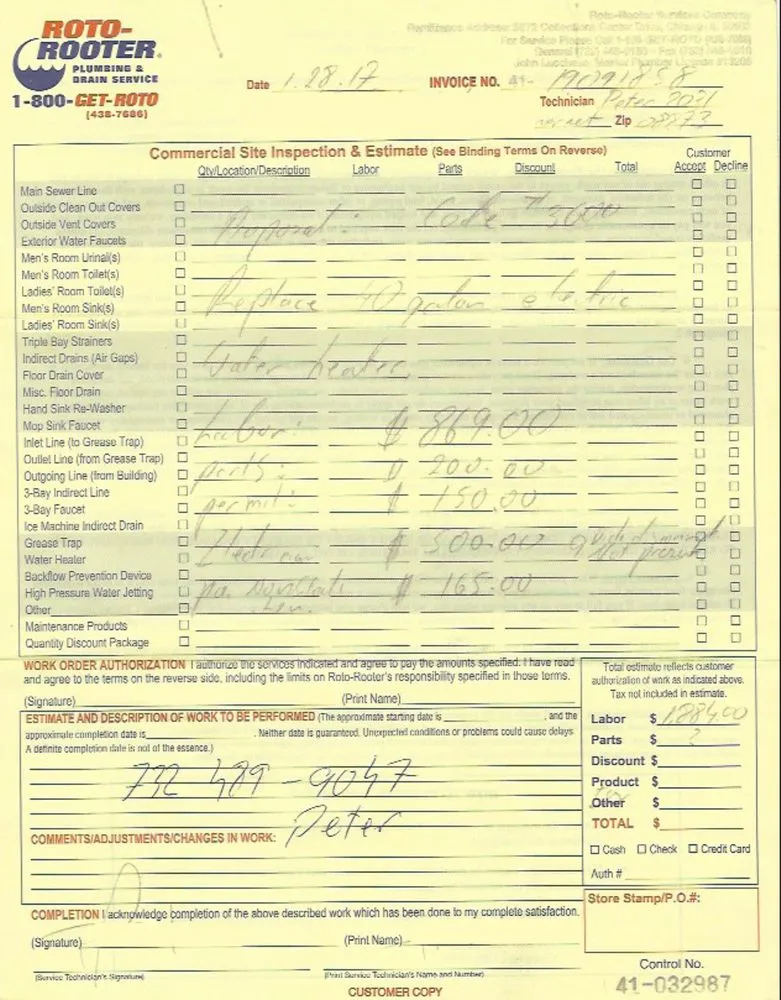 ROTO-ROOTER
PLUMBING &
DRAIN SERVICE
1-800-GET-ROTO
(438-7686)
Date 1.28.17
INVOICE NO. 41-
Technician Peter
Zip
Commercial Site Inspection & Estimate (See Binding Terms On Reverse)
Qty/Location/Description Labor Parts Discount Total
Customer
Accept Decline
Main Sewer Line
Outside Clean Out Covers
Outside Vent Covers
Proposal: Code # 3000
Exterior Water Faucets
Men's Room Urinal(s)
Men's Room Toilet(s)
Ladies' Room Toilet(s)
Men's Room Sink(s)
Replace 40 galon electric
Ladies' Room Sink(s)
Triple Bay Strainers
Indirect Drains (Air Gaps)
Floor Drain Cover
Water heater
Misc. Floor Drain
Hand Sink Re-Washer
Mop Sink Faucet
Labor: $ 869.00
Inlet Line (to Grease Trap)
Outlet Line (from Grease Trap)
Outgoing Line (from Building)
parts: $ 200.00
3-Bay Indirect Line
3-Bay Faucet
permit: $ 150.00
Ice Machine Indirect Drain
Grease Trap
$ 500.00
Water Heater
Backflow Prevention Device
High Pressure Water Jetting
$ 165.00
Other
Maintenance Products
Quantity Discount Package
WORK ORDER AUTHORIZATION I authorize the services indicated and agree to pay the amounts specified. I have read
and agree to the terms on the reverse side, including the limits on Roto-Rooter's responsibility specified in those terms.
(Signature) (Print Name)
ESTIMATE AND DESCRIPTION OF WORK TO BE PERFORMED (The approximate starting date is , and the
approximate completion date is . Neither date is guaranteed. Unexpected conditions or problems could cause delays
A definite completion date is not of the essence.)
732 489-9047
Peter
COMMENTS/ADJUSTMENTS/CHANGES IN WORK:
COMPLETION I acknowledge completion of the above described work which has been done to my complete satisfaction.
(Signature) (Print Name)
(Service Technician's Signature) (Print Service Technician's Name and Number)
CUSTOMER COPY
Total estimate reflects customer
authorization of work as indicated above.
Tax not included in estimate.
Labor $ 1,884.00
Parts $ ?
Discount $
Product $
Other $
TOTAL $
Cash Check Credit Card
Auth #
Store Stamp/P.O.#:
Control No.
41-032987